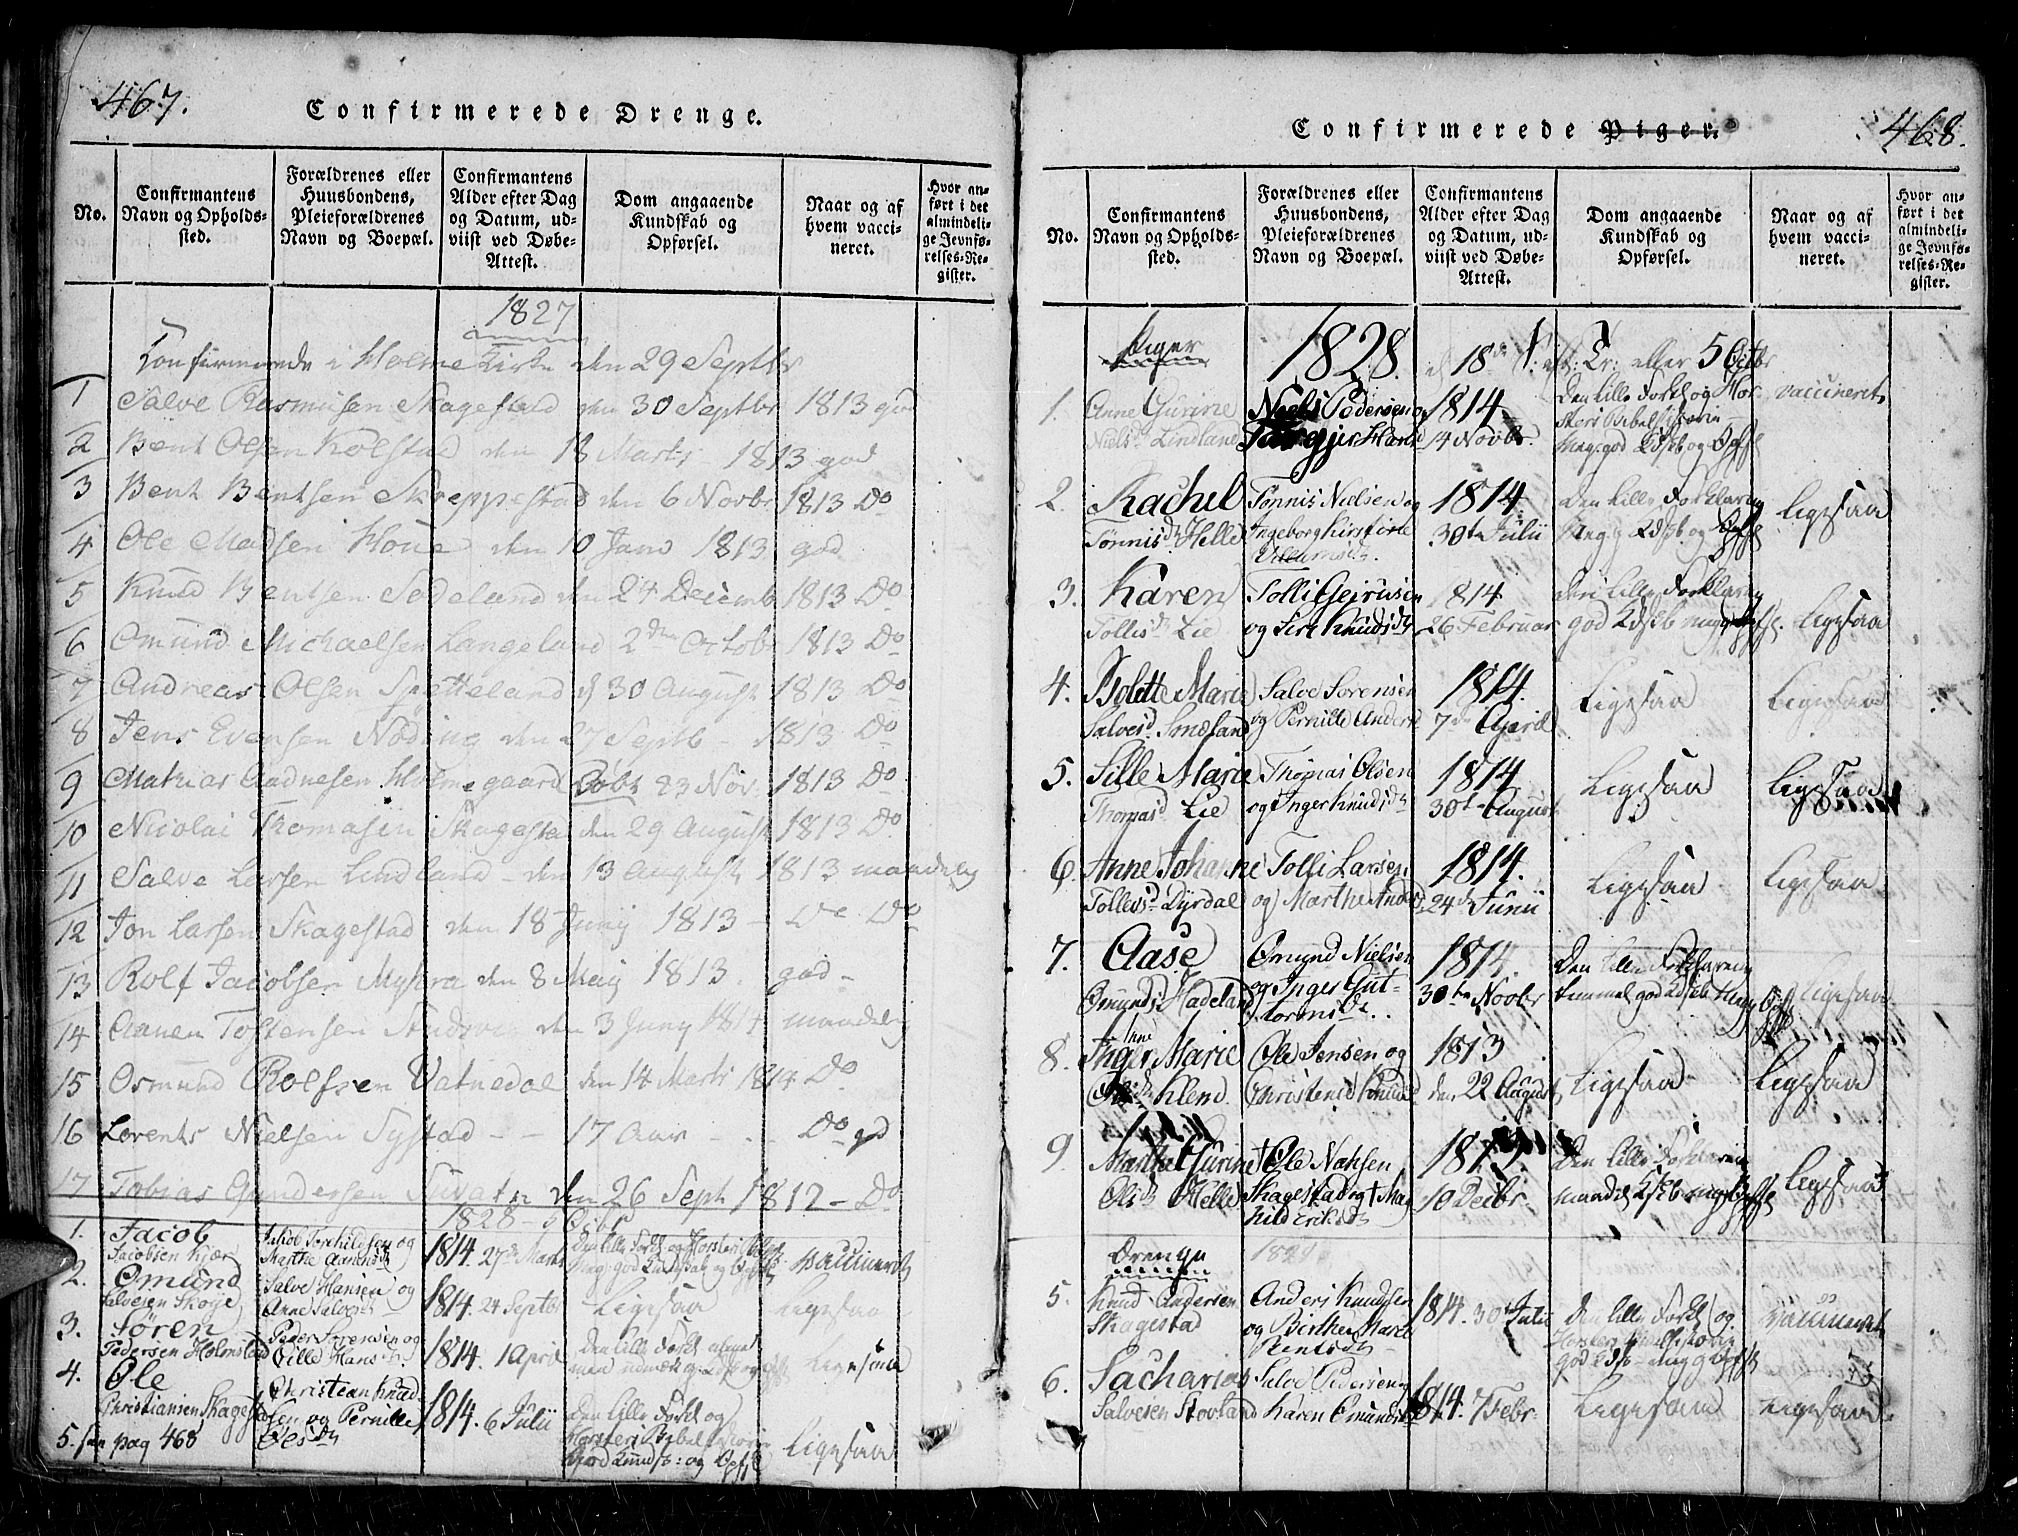 467.
Confirmerede Drenge.
No.
Confirmantens Navn og Opholds-sted.
Forældrenes eller Huusbondens, Pleieforældrenes Navn og Boepæl.
Confirmantens Alder efter Dag og Datum, ud-viist ved Døbe-Attest.
Dom angaaende Kundskab og Opførsel.
Naar og af hvem vacci-neret.
Hvor an-ført i det almindeli-ge Jevnfø-relses-Re-gister.
1827
Confirmerede i Holme Kirke den 29 Septbr
1 Salve Rasmusen Skagestad den 30 Septbr 1813 god
2 Bent Olsen Kolstad den 18 Marts - 1813 god
3 Bent Bentsen Skeppestad den 6 Novbr 1813 Do
4 Ole Madsen Houe den 10 Janv 1813 god
5 Knud Bentsen Sødeland den 24 Decemb 1813 Do
6 Omund Michaelsen Langeland 2den Octob 1813 Do
7 Andreas Olsen Spetteland d 30 August 1813 Do
8 Jens Evensen Nøding den 27 Septb - 1813 Do
9 Mathias Aadnesen Holmegaard Døbt 23 Nov. 1813 Do
10 Nicolai Thomasen Skagestad den 29 August 1813 Do
11 Salve Larsen Lindland - den 13 August 1813 maadelig
12 Jon Larsen Skagestad den 18 Junij 1813 - Do Do
13 Rolf Jacobsen Myhra den 8 Maij 1813. god -
14 Aanen Tostensen den 3 Juny 1814 maadelig
15 Osmund Rolfsen Vatnedal den 14 Marts 1814 Do
16 Lorents Nielsen Systad - - 17 Aar - Do god
17 Tobias Gundersen den 26 Sept 1812 - Do
1828 - 5 Octbr
1. Jacob Jacobsen Kjær
Jakob Torkildsen og Marthe Aanensd
1814. 27de Marts
vaccineret
2. Omund Salvesen Skoije
Salve Hansen og Anne Salvesd
1814. 24 Septbr
Ligesaa
Ligesaa
3. Søren Pedersen Holmstad
Peder Sørensen og Sille Hansd.
1814. 1 April
Ligesaa
4. Ole Christiansen Skagestad
Christian Knudsen og Pernille Olesd
1814. 6 Julii
Den Lille Forkl og Horsters Bibelhistorie
Ligesaa
5. see pag 468
468.
Confirmerede Piger.
No.
Confirmantens Navn og Opholds-sted.
Forældrenes eller Huusbondens, Pleieforældrenes Navn og Boepæl.
Confirmantens Alder efter Dag og Datum, ud-viist ved Døbe-Attest.
Dom angaaende Kundskab og Opførsel.
Naar og af hvem vacci-neret.
Hvor an-ført i det almindeli-ge Jevnfø-relses-Re-gister.
Piger
1828. d 18de S. eft: Tr: eller 5 Octbr
1. Anne Gurine Nielsd Lindland
Niels Pedersen og
1814. 14 Novbr.
Den Lille Forkl og Horsters Bibelhistorie
Meg. god Kdsb og Opfsl
vaccineret
2. Rachel Tønnisd Helle
Tønnis Nielsen og Ingeborg Kirstine Villumsd.
1814 30te Julii
Den Lille Forklaring
Ligesaa
3. Karen Tollisd Lie
Tolli Gejrusen og Siri Knudsd
1814 26 Februar
Den Lille Forklaring
Ligesaa
4. Bolette Marie Salvesd
Salve Sørensen og Pernille Andersd
1814. 7de April
Ligesaa
Ligesaa
5. Sille Marie Thomasd Lie
Thomas Olsen og Inger Knudsd
1814 30te August
Ligesaa
Ligesaa
6. Anne Johanne Tollevsd Dyrdal
Tolli Larsen og Marthe Andersd
1814. 24de Junii
Ligesaa
Ligesaa
7. Aase Omundsd Hadeland
Omund Nielsen og Inger Guttormsd.
1814. 30te Novbr
Den Lille Forklaring
Ligesaa
8. Inger Marie Olesd Klend
Ole Jensen og Christence Knudsd
1813 den 22 August
Ligesaa
Ligesaa
9 Marthe Gurine Olisd Helle
Ole Nahsen Skagestad og Magnhild Eriksd
10 Decbr
Den Lille Forklaring
Ligesaa
Drenge
5. Knud Andersen Skagestad
Anders Knudsen og Birthe Marie
1814. 30te Julii
Den Lille Forkl og Horsters Bibelhistorie
vaccineret
6. Sacharias Salvesen Stovland
Salve Pedersen og Karen Omundsd
1814. 7 Febr
Ligesaa
Ligesaa